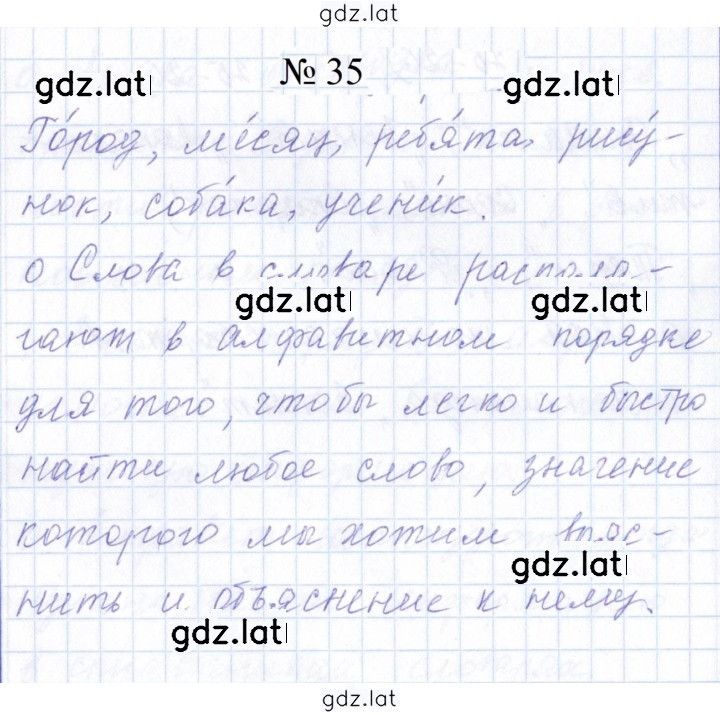 gdz.lat
№ 35
gdz.lat gdz.lat
Го́род, ме́сяц, ребя́та, рису́-
нок, соба́ка, учени́к.
о Слова в словаре распола-
gdz.lat gdz.lat
гают в алфавитном порядке
для того, чтобы легко и быстро
найти любое слово, значение
которого мы хотим выяс-
gdz.lat
нить и объяснение к нему.
gdz.lat
gdz.lat